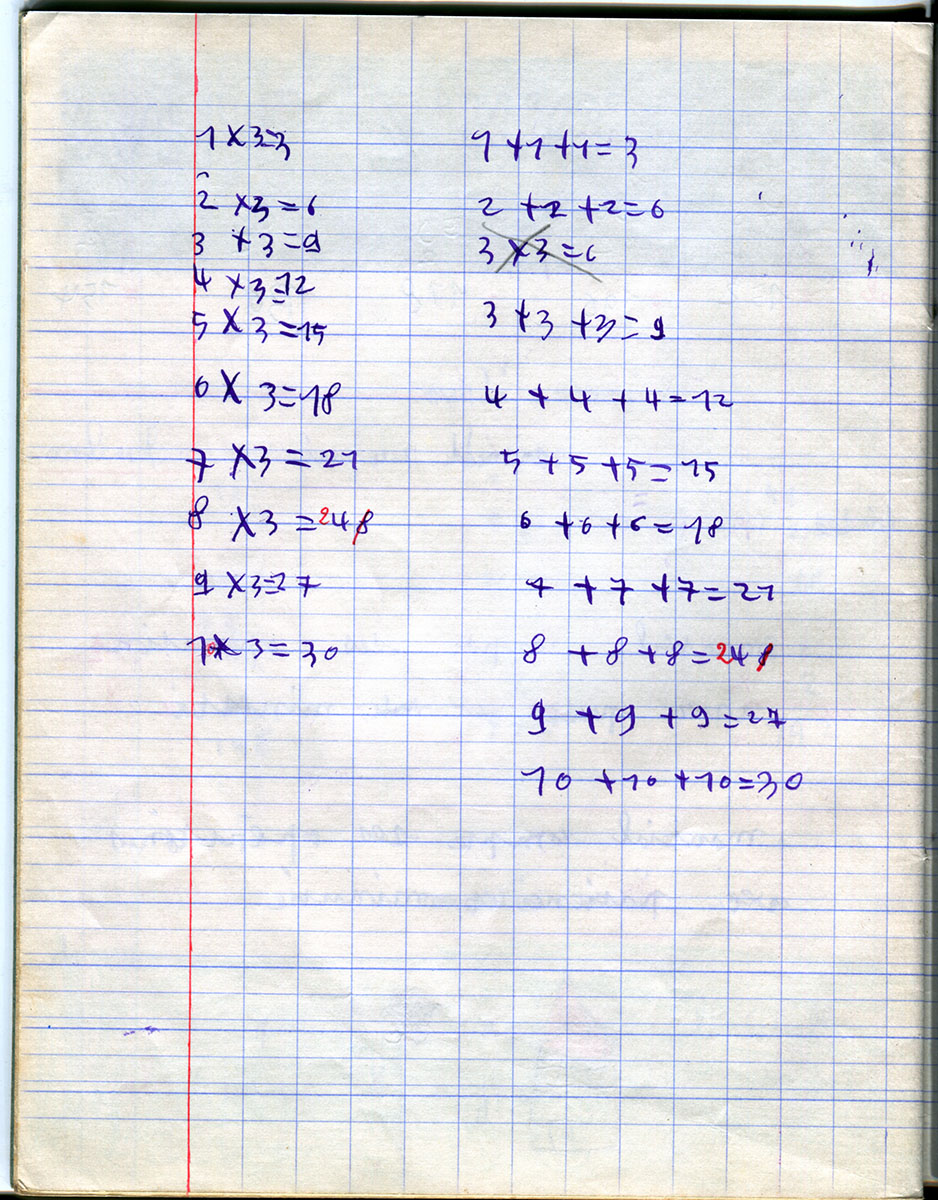 1 x 3=3
2 x 3 = 6
3 x 3 = 9
4 x 3=12
5 x 3 = 15
6 x 3=18
7 x 3 = 21
8 x 3 = 24
9 x 3=27
10 x 3 = 30
1 + 1 + 1 = 3
2 + 2 + 2 = 6
3 x 3 = 6
3 + 3 + 3 = 9
4 + 4 + 4 = 12
5 + 5 + 5 = 15
6 + 6 + 6 = 18
7 + 7 + 7 = 21
8 + 8 + 8 = 24
9 + 9 + 9 = 27
10 + 10 + 10 = 30